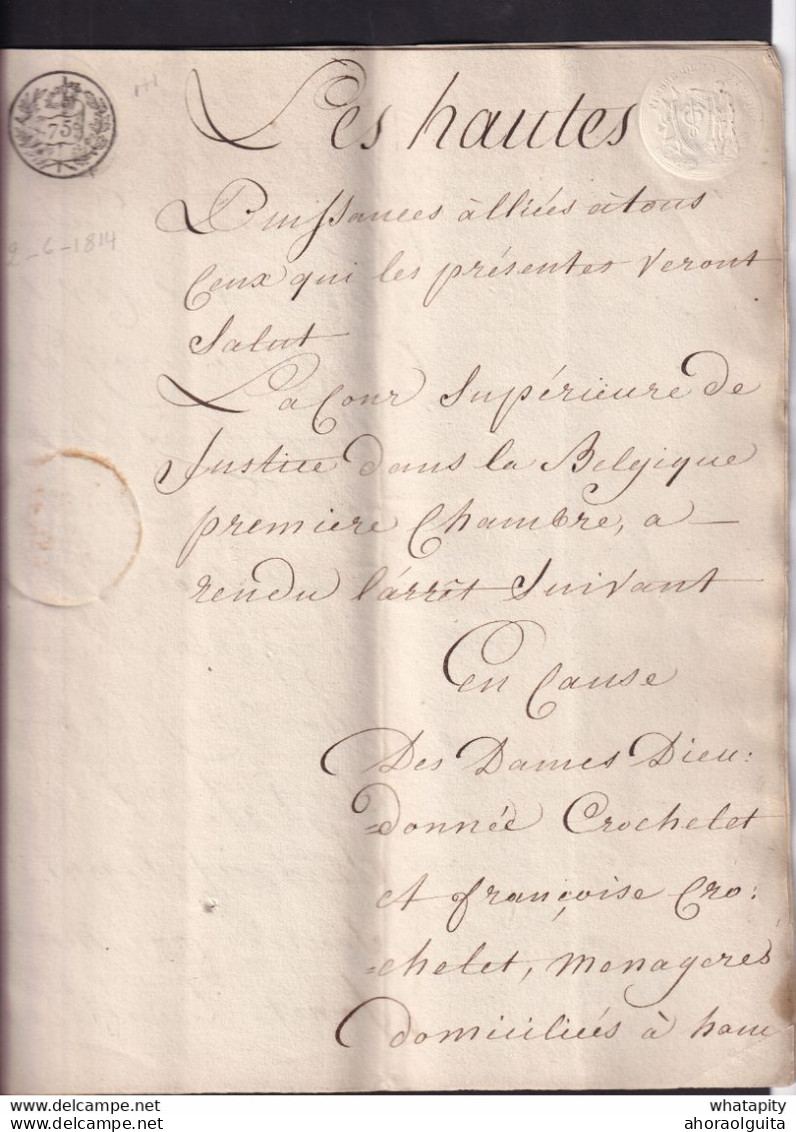 75
2-6-1814
Les hautes
Puissances àlliées à tous
Ceux qui les présentes Veront
Salut
La Cour Supérieure de
Justice dans la Belgique
première Chambre, a
rendu l'àrrêt Suivant
En Cause
Des Dames Dieu:
=donnée Crochelet
et françoise Cro:
=chelet, menageres
domiciliées à ham
www.delcampe.net
www.delcampe.net
whatapity
ahoraolguita